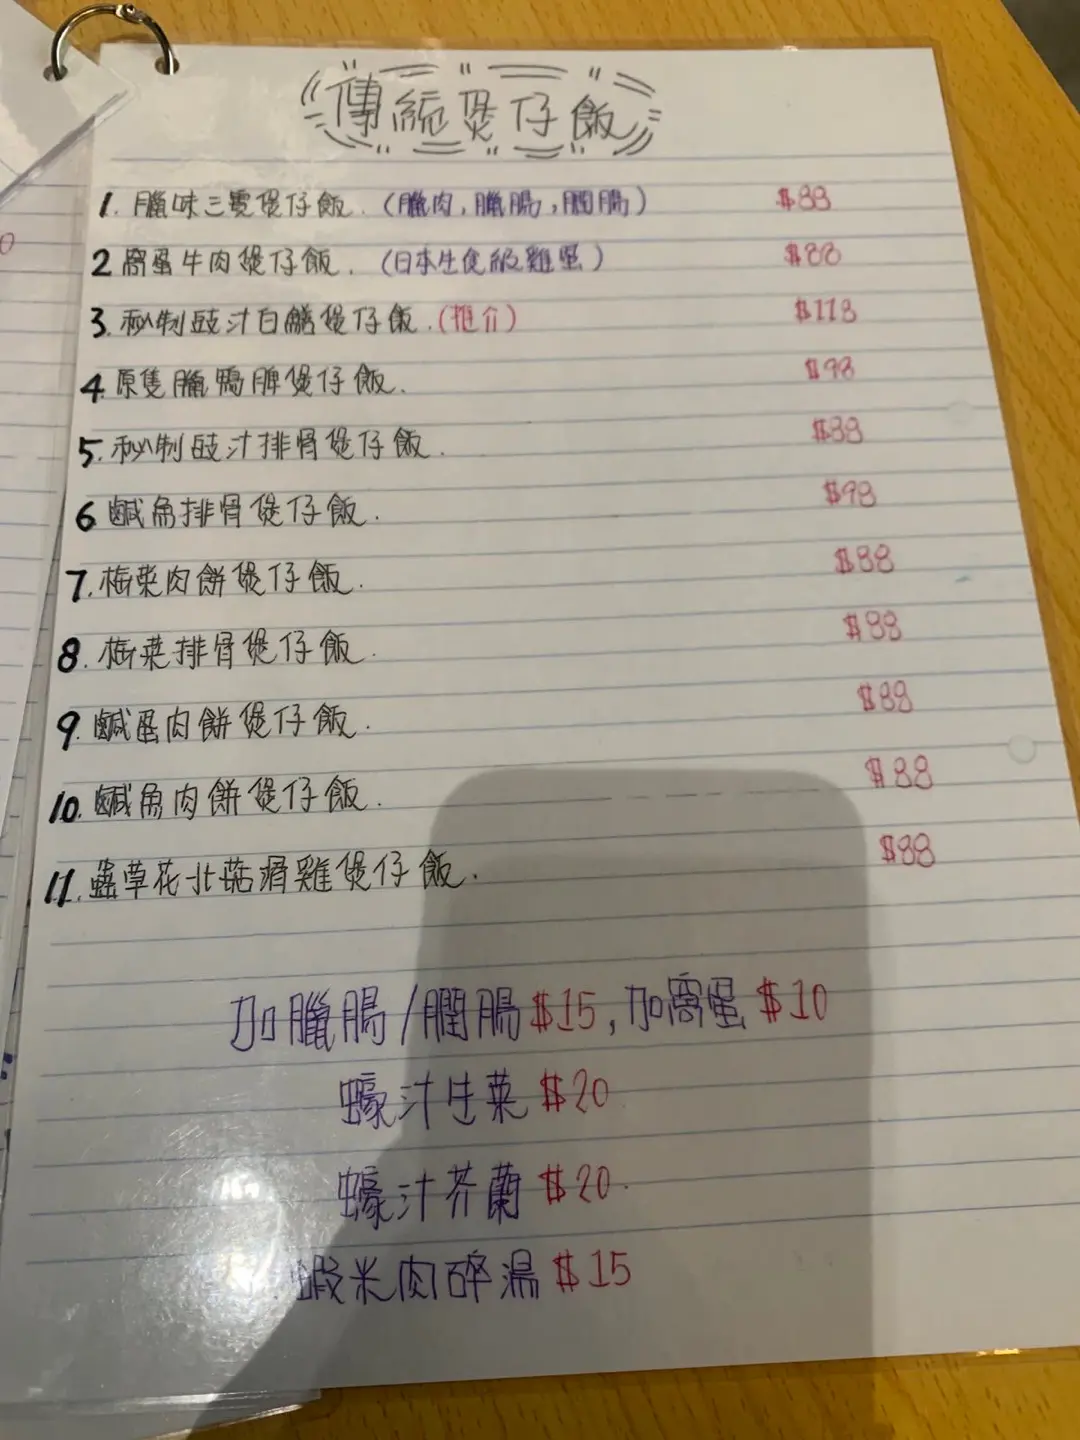 傳統煲仔飯
1. 臘味三寶煲仔飯.（臘肉,臘腸,膶腸） $88
2 窩蛋牛肉煲仔飯.（日本生食級雞蛋） $88
3. 秘制豉汁白鱔煲仔飯.（推介） $118
4 原隻臘鴨脾煲仔飯. $98
5. 秘制豉汁排骨煲仔飯. $88
6 鹹魚排骨煲仔飯. $98
7. 梅菜肉餅煲仔飯. $88
8. 梅菜排骨煲仔飯. $88
9. 鹹蛋肉餅煲仔飯. $88
10. 鹹魚肉餅煲仔飯. $88
11. 蟲草花北菇滑雞煲仔飯. $88
加臘腸/膶腸$15,加窩蛋$10
蠔汁生菜$20
蠔汁芥蘭$20.
蝦米肉碎湯$15